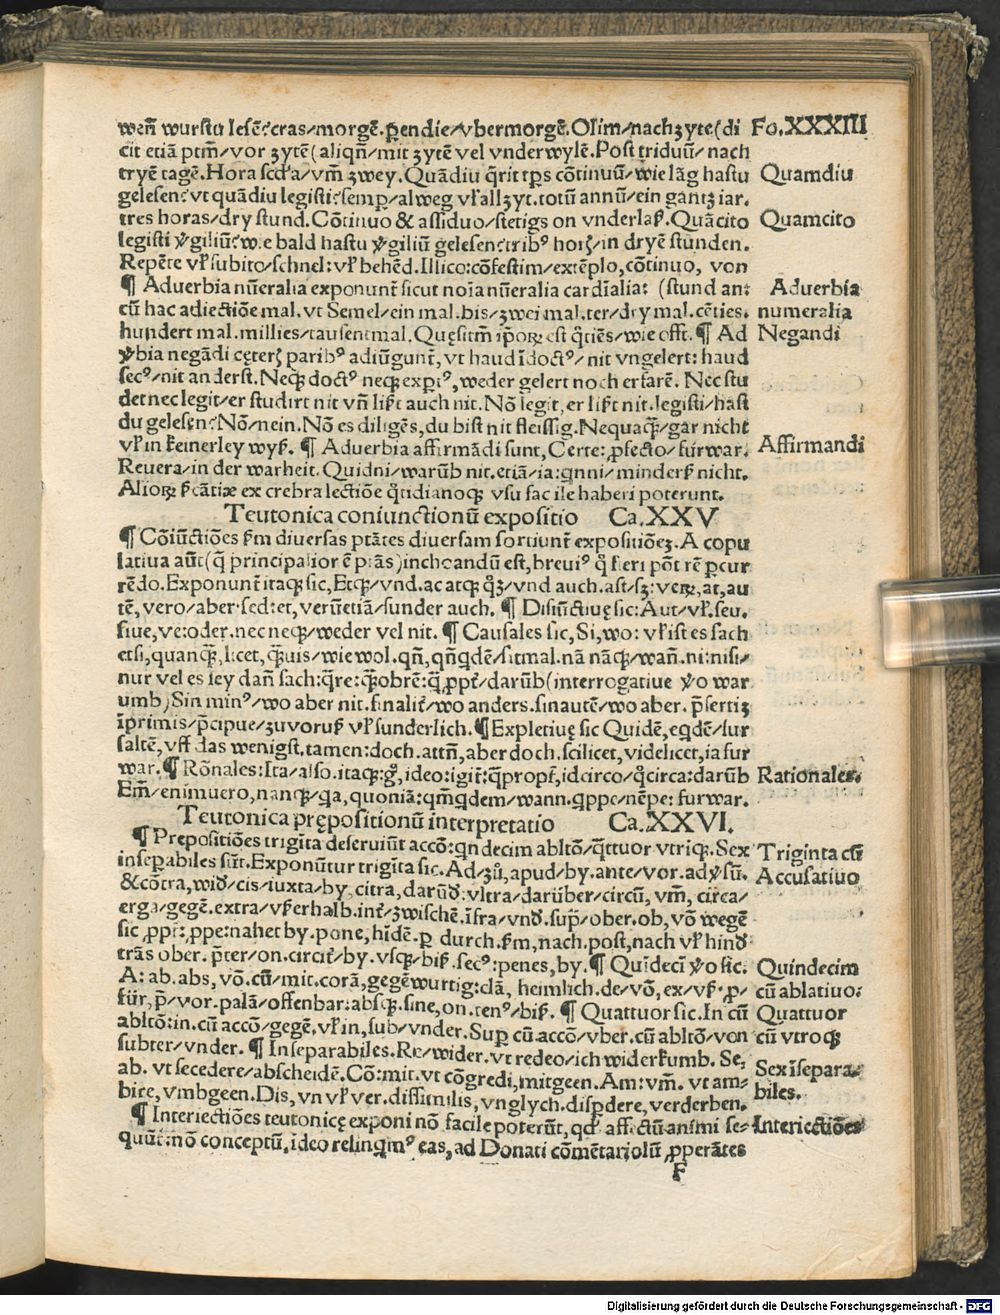 wen̄ wurstu lesē?cras/morgē.ꝑendie/vbermorgē.Olim/nach zyte(di Fo.XXXIII
cit etiā ptm̄/vor zytē(aliqn̄/mit zytē vel vnderwylē.Post triduū/nach
tryē tagē.Hora scd'a/vm̄ zwey.Quādiu q̄rit tp̄s cōtinuū/wie lāg hastu Quamdiu
gelesen?vt quādiu legisti?semꝑ/alweg vl'allzyt.totū annū/ein gantz iar.
tres horas/dry stund.Cōtinuo & assiduo/stetigs on vnderlaß.Quācito Quamcito
legisti v'giliū?wie bald hastu v'giliū gelesen?trib⁹ horꝭ/in dryē stunden.
Repēte vl'subito/schnel:vl'behēd.Illico:cōfestim/extēplo,cōtinuo, von
¶ Aduerbia nūeralia exponunt̄ sicut noīa nūeralia cardīalia: (stund an: Aduerbia
cū hac adiectiōe mal.vt Semel/ein mal.bis/zwei mal.ter/dry mal.cēties. numeralia
hundert mal.millies/tausent mal.Quęsitm̄ ip̄oꝝ est q̄tiēs/wie offt.¶ Ad Negandi
v'bia negādi cęterꝭ parib⁹ adiūgunt̄,vt haud īdoct⁹/nit vngelert:haud
sec⁹/nit anderst.Neqꝫ doct⁹ neqꝫ exꝑt⁹,weder gelert noch erfarē.Nec stu
det nec legit/er studirt nit vn̄ lißt auch nit.Nō legit,er lißt nit.legisti/hast
du gelesen?Nō/nein.Nō es diligēs,du bist nit fleissig.Nequaq̄ꝫ/gar nicht
vl'in keinerley wyß.¶ Aduerbia affirmādi sunt,Certe:ꝓfecto/fürwar. Affirmandi
Reuera/in der warheit.Quidni/warūb nit.etiā/ia:qnni/minderß nicht.
Alioꝝ ſc̄atiæ ex crebra lectiōe q̄tidianoqꝫ vsu facile haberi poterunt.
Teutonica coniunctionū expositio Ca.XXV
¶ Cōiūctiōes ſm diuersas ptātes diuersam sortiunt̄ expositiōeꝫ.A copu
latiua aūt(q̄ principalior ē p̄tās)inchoandū est,breui⁹ q̄ fieri pōt rē ꝑcur
rēdo.Exponunt̄ itaqꝫ sic,Etqꝫ/vnd.ac atqꝫ q̄ꝫ/vnd auch.ast/sꝫ:veꝝ,at,au
tē,vero/aber.sed:et,verūetiā/sunder auch.¶ Disiūctiuę sic:Aut/vl'.seu.
siue,ve:oder.nec neqꝫ/weder vel nit.¶ Causales sic,Si,wo:vl'ist es sach
etsi,quanq̄ꝫ,licet,q̄ꝫuis/wiewol.qn̄,qn̄qdē/sitmal.nā nāqꝫ/wan̄.ni:nisi/
nur vel es sey dan̄ sach:q̄re:q̄ꝫobrē:q̄ ꝓpt'/darūb(interrogatiue v'o war
umb)Sin min⁹/wo aber nit.sinalit'/wo anders.sinautē/wo aber.p̄sertiꝫ
īprimis/p̄cipue/zuvoruß vl'sunderlich.¶Expletiuę sic Quidē,eqdē/fur
saltē,vff das wenigst.tamen:doch.attn̄,aber doch.scilicet,videlicet,ia fur
war.¶ Rōnales:Ita/also.itaqꝫ:g̊,ideo:igit':q̄ꝓpt',idcirco/q̊circa:darūb Rationales.
Em̄/enimuero,nanqꝫ/qa,quoniā:qm̄qdem/wann.qppe/nēpe:furwar.
Teutonica prępositionū interpretatio Ca.XXVI.
¶ Prepositiōes trigīta deseruiūt accō:qndecim abltō/q̄ttuor vtriqꝫ.Sex Triginta cū
inseparabiles sūt.Exponūtur trigīta sic.Ad/zů,apud/by.ante/vor.adv'sū. Accusatiuo
&cōtra,wid'/cis/iuxta/by,citra,darūd':vltra/darüber/circū,vm̄,circa/
erga/gegē.extra/vßerhalb.int'/zwischē.īfra/vnd'.sup̄/ober.ob,vō wegē
sic ꝓpt':ꝓpe:nahet by.pone,hīdē.ꝑ durch.ſm,nach.post,nach vl'hind'
trās ober.p̄ter/on.circit'/by.vsqꝫ/biß.sec⁹:penes,by.¶ Quīdecī v'o sic. Quindecim
A:ab.abs,vō.cū/mit.corā,gegēwurtig:clā, heimlich.de/vō,ex/vß.ꝓ/ cū ablatiuo:
für,p̄/vor.palā/offenbar:absqꝫ.sine,on.ten⁹/biß.¶ Quattuor sic.In cū Quattuor
abltō:in.cū accō/gegē.vl'in,sub/vnder.Suꝑ cū.accō/vber.cū abltō/von cū vtroqꝫ
subter/vnder.¶ Inseparabiles.Re/wider.vt redeo/ich widerkumb.Se,
ab.vt secedere/abscheidē.Cō:mit.vt cōgredi,mitgeen.Am:vm̄.vt am/ Sex īsepara/
bire,vmbgeen.Dis,vn vl'ver.dissimilis,vnglych.disꝑdere,verderben. biles.
¶ Interiectiōes teutonicę exponi nō facile poterūt,qd' affectū animi se/ Interiectiōes
quūt:nō conceptū,ideo relinqm⁹ eas,ad Donati cōmētariolū ꝓperātes
F
Digitalisierung gefördert durch die Deutsche Forschungsgemeinschaft - DFG